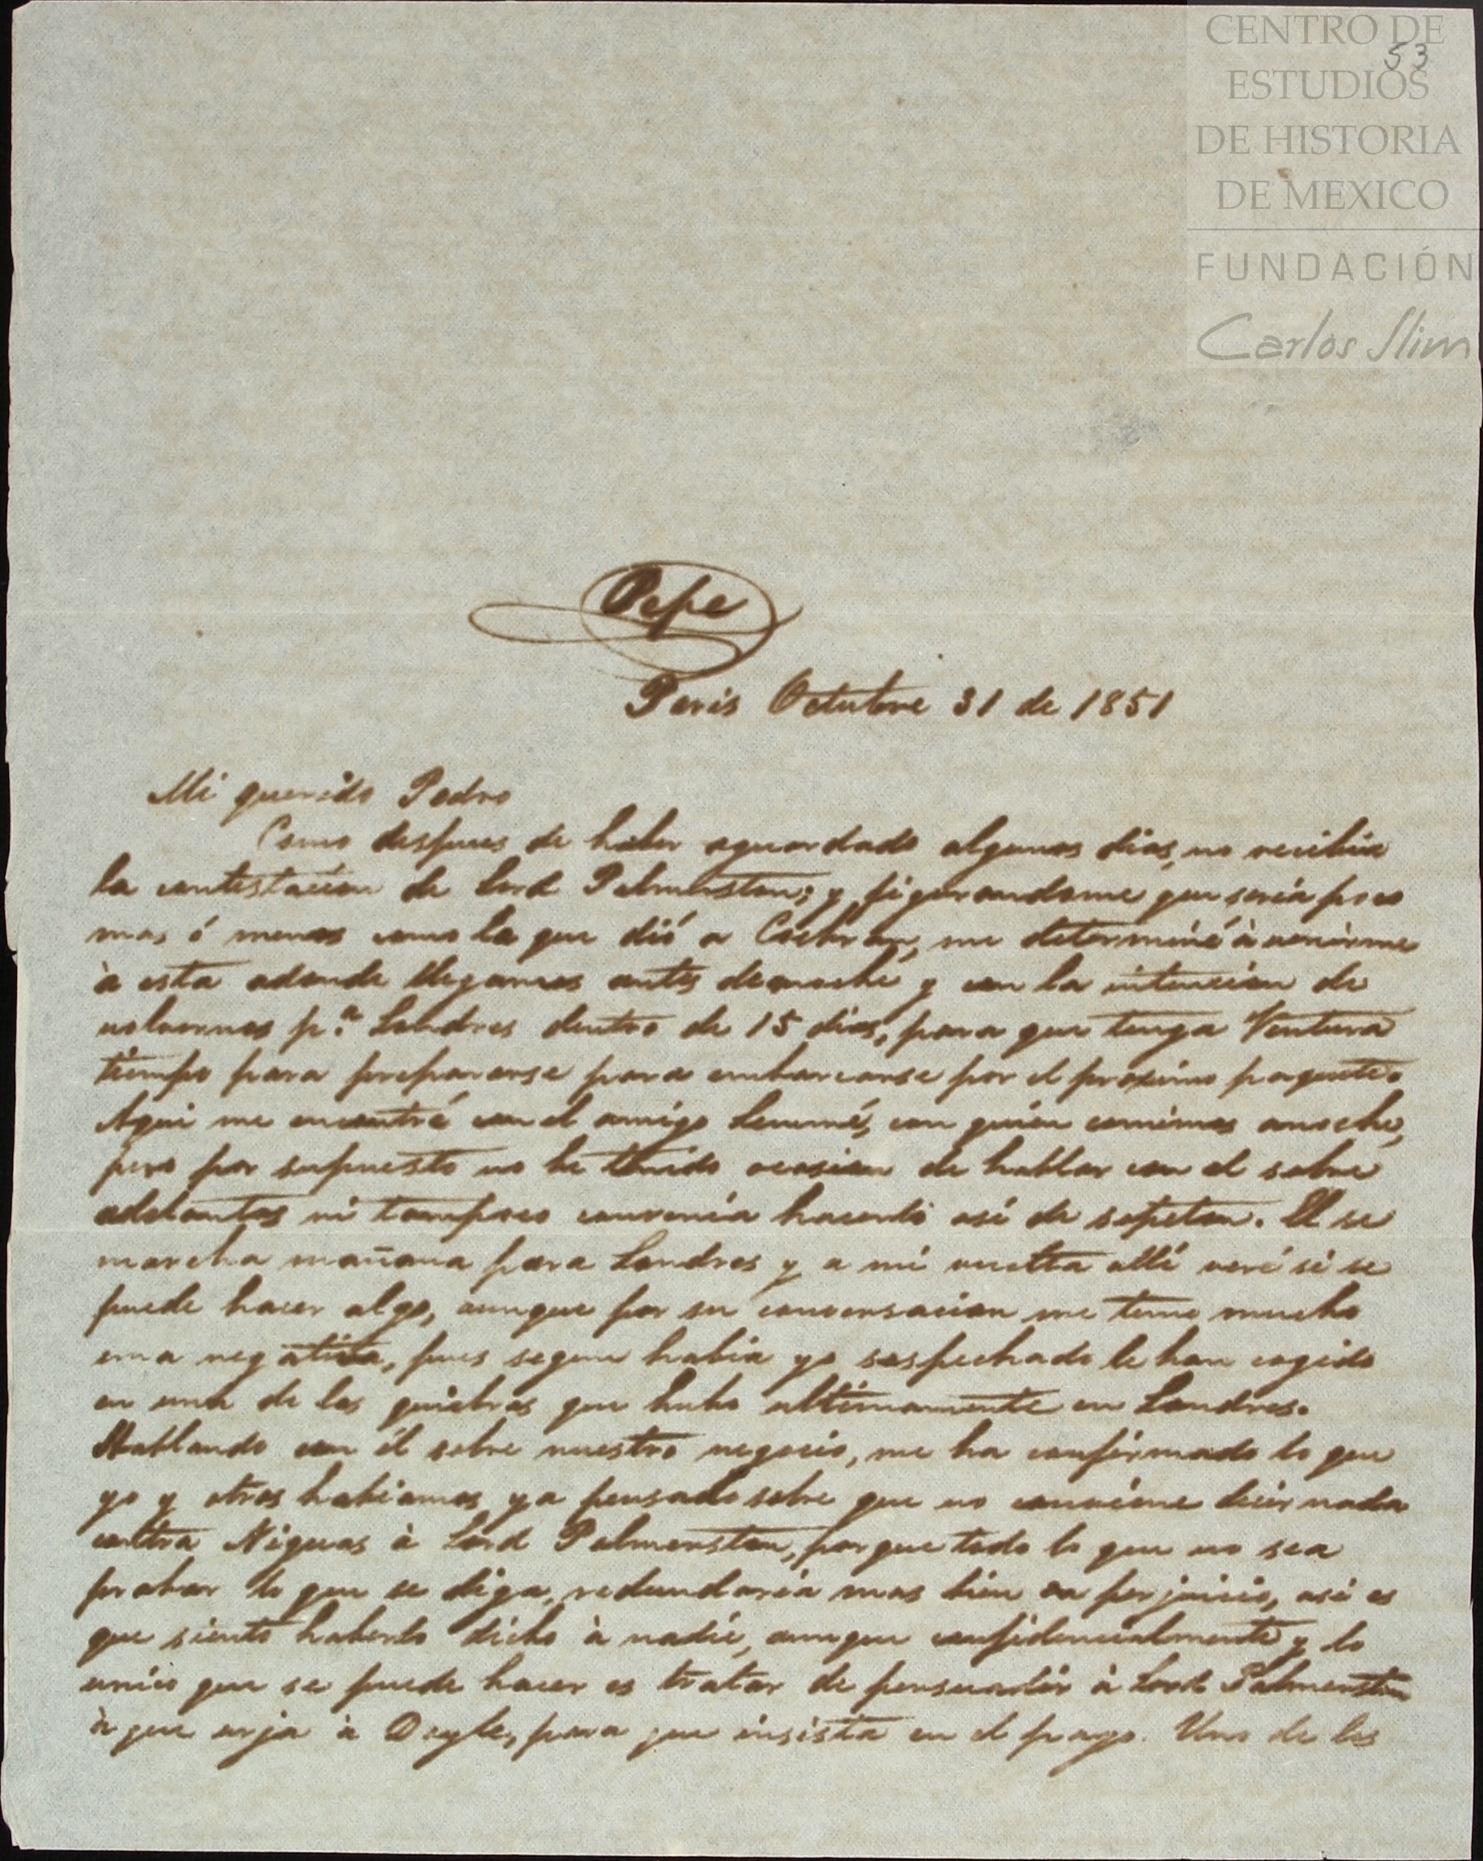 CENTRO DE
53
ESTUDIOS
DE HISTORIA
DE MEXICO
FUNDACIÓN
Carlos Slim
Pepe
Paris Octubre 31 de 1851
Mi querido Pedro
Como despues de haber aguardado algunos dias, no recibia
la contestacion de Lord Palmerston; y figurandome que seria poco
mas ó menos como la que dió a Cochran, me determiné à venirme
à esta adonde llegamos antes de anoche y con la intencion de
volvernos pª Londres dentro de 15 dias, para que tenga Ventura
tiempo para prepararse para embarcarse por el proximo paquete.
Aqui me encontré con el amigo Lemmé, con quien comimos anoche,
pero por supuesto no he tenido ocasion de hablar con el sobre
adelantos ni tampoco convenia hacerlo asi de sopeton. El se
marcha mañana para Londres y a mi vuelta allí veré si se
puede hacer algo, aunque por su conversacion me temo mucho
una negativa, pues segun habia yo sospechado le han cogido
en una de las quiebras que hubo ultimamente en Londres.
Hablando con él sobre nuestro negocio, me ha confirmado lo que
yo y otros habiamos ya pensado sobre que no conviene decir nada
contra Niguas à Lord Palmerston, porque todo lo que no sea
probar lo que se diga, redundaria mas bien en perjuicio, asi es
que siento haberlo dicho à nadie, aunque confidencialmente y lo
unico que se puede hacer es tratar de persuadir à Lord Palmerston
à que urja à Doyle, para que insista en el pago. Uno de los